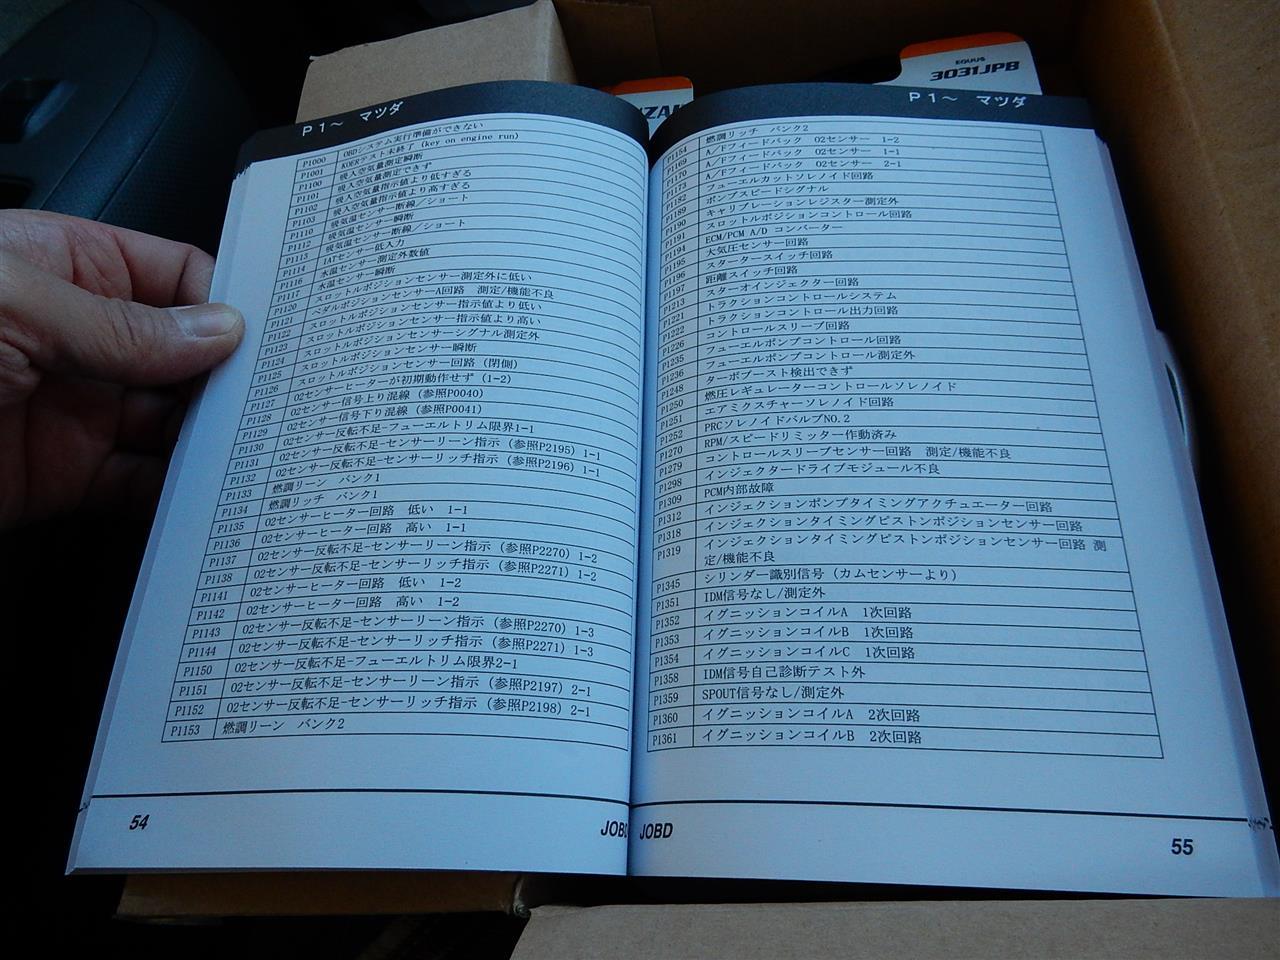 EQUUS
3031JPB
P1～ マツダ
P1000 OBDシステム実行準備ができない
P1001 KOERテスト未終了 (key on engine run)
P1100 吸入空気量測定瞬断
P1101 吸入空気量測定できず
P1102 吸入空気量指示値より低すぎる
P1103 吸入空気量指示値より高すぎる
P1110 吸気温センサー断線／ショート
P1112 吸気温センサー瞬断
P1113 吸気温センサー断線／ショート
P1114 IATセンサー低入力
P1116 水温センサー測定外数値
P1117 水温センサー瞬断
P1120 スロットルポジションセンサー測定外に低い
P1121 ペダルポジションセンサーA回路 測定/機能不良
P1122 スロットルポジションセンサー指示値より低い
P1123 スロットルポジションセンサー指示値より高い
P1124 スロットルポジションセンサーシグナル測定外
P1125 スロットルポジションセンサー瞬断
P1126 スロットルポジションセンサー回路（閉側）
P1127 O2センサーヒーターが初期動作せず（1-2）
P1128 O2センサー信号上り混線（参照P0040）
P1129 O2センサー信号下り混線（参照P0041）
P1130 O2センサー反転不足-フューエルトリム限界1-1
P1131 O2センサー反転不足-センサーリーン指示（参照P2195）1-1
P1132 O2センサー反転不足-センサーリッチ指示（参照P2196）1-1
P1133 燃調リーン バンク1
P1134 燃調リッチ バンク1
P1135 O2センサーヒーター回路 低い 1-1
P1136 O2センサーヒーター回路 高い 1-1
P1137 O2センサー反転不足-センサーリーン指示（参照P2270）1-2
P1138 O2センサー反転不足-センサーリッチ指示（参照P2271）1-2
P1141 O2センサーヒーター回路 低い 1-2
P1142 O2センサーヒーター回路 高い 1-2
P1143 O2センサー反転不足-センサーリーン指示（参照P2270）1-3
P1144 O2センサー反転不足-センサーリッチ指示（参照P2271）1-3
P1150 O2センサー反転不足-フューエルトリム限界2-1
P1151 O2センサー反転不足-センサーリーン指示（参照P2197）2-1
P1152 O2センサー反転不足-センサーリッチ指示（参照P2198）2-1
P1153 燃調リーン バンク2
54
P1～ マツダ
P1154 燃調リッチ バンク2
P1169 A/Fフィードバック O2センサー 1-2
P1170 A/Fフィードバック O2センサー 1-1
P1173 A/Fフィードバック O2センサー 2-1
P1182 フューエルカットソレノイド回路
P1189 ポンプスピードシグナル
P1190 キャリブレーションレジスター測定外
P1191 スロットルポジションコントロール回路
P1194 ECM/PCM A/D コンバーター
P1195 大気圧センサー回路
P1196 スタータースイッチ回路
P1197 距離スイッチ回路
P1213 スターオインジェクター回路
P1221 トラクションコントロールシステム
P1222 トラクションコントロール出力回路
P1226 コントロールスリーブ回路
P1235 フューエルポンプコントロール回路
P1236 フューエルポンプコントロール測定外
P1248 ターボブースト検出できず
P1250 燃圧レギュレーターコントロールソレノイド
P1251 エアミクスチャーソレノイド回路
P1252 PRCソレノイドバルブNO.2
P1270 RPM/スピードリミッター作動済み
P1279 コントロールスリーブセンサー回路 測定/機能不良
P1298 インジェクタードライブモジュール不良
P1309 PCM内部故障
P1312 インジェクションポンプタイミングアクチュエーター回路
P1318 インジェクションタイミングピストンポジションセンサー回路
P1319 インジェクションタイミングピストンポジションセンサー回路 測
定/機能不良
P1345 シリンダー識別信号（カムセンサーより）
P1351 IDM信号なし/測定外
P1352 イグニッションコイルA 1次回路
P1353 イグニッションコイルB 1次回路
P1354 イグニッションコイルC 1次回路
P1358 IDM信号自己診断テスト外
P1359 SPOUT信号なし/測定外
P1360 イグニッションコイルA 2次回路
P1361 イグニッションコイルB 2次回路
JOBD
55